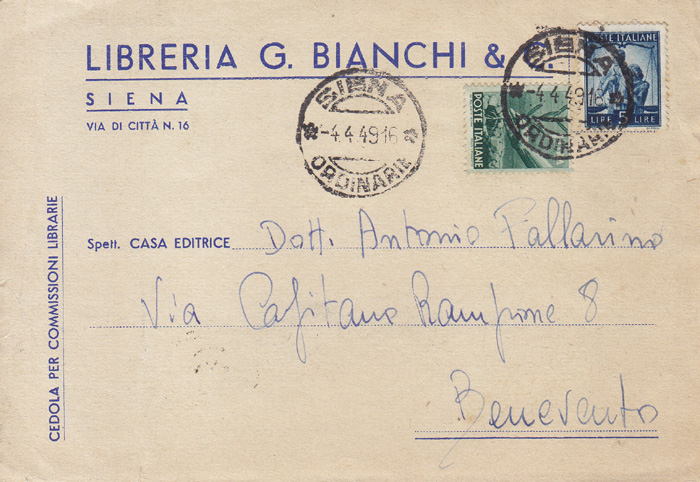 LIBRERIA G. BIANCHI & C.
SIENA
VIA DI CITTÀ N. 16
POSTE ITALIANE
LIRE 5 LIRE
POSTE ITALIANE
SIENA
-4.4.49 16
ORDINARIE
SIENA
-4.4.49 16
ORDINARIE
CEDOLA PER COMMISSIONI LIBRARIE
Spett. CASA EDITRICE Dott. Antonio Pallarino
Via Capitano Rampone 8
Benevento